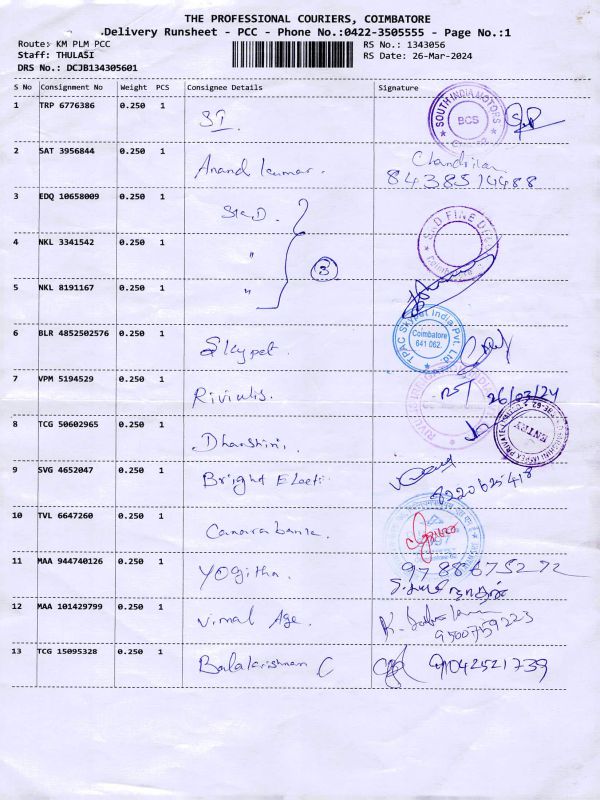 THE PROFESSIONAL COURIERS, COIMBATORE
Delivery Runsheet - PCC - Phone No.:0422-3505555 - Page No.:1
Route: KM PLM PCC
RS No.: 1343056
Staff: THULASI
RS Date: 26-Mar-2024
DRS No.: DCJB134305601
S No Consignment No Weight PCS Consignee Details Signature
1 TRP 6776386 0.250 1 SI
SOUTH INDIA MOTORS BCS
2 SAT 3956844 0.250 1 Anand kumar.
8438514488
3 EDQ 10658009 0.250 1
4 NKL 3341542 0.250 1 "
3
5 NKL 8191167 0.250 1 "
6 BLR 4852502576 0.250 1 Skypet.
TPAC Skypet India Pvt. Ltd. Coimbatore 641 062.
7 VPM 5194529 0.250 1
26/03/24
8 TCG 50602965 0.250 1 Dharshini.
ENTRY
9 SVG 4652047 0.250 1 Bright Elect.
8220625418
10 TVL 6647260 0.250 1 Canara bank.
11 MAA 944740126 0.250 1 Yogitha.
9788675272
12 MAA 101429799 0.250 1 Vimal Age.
9500759223
13 TCG 15095328 0.250 1 Balakrishnan C
9042521739